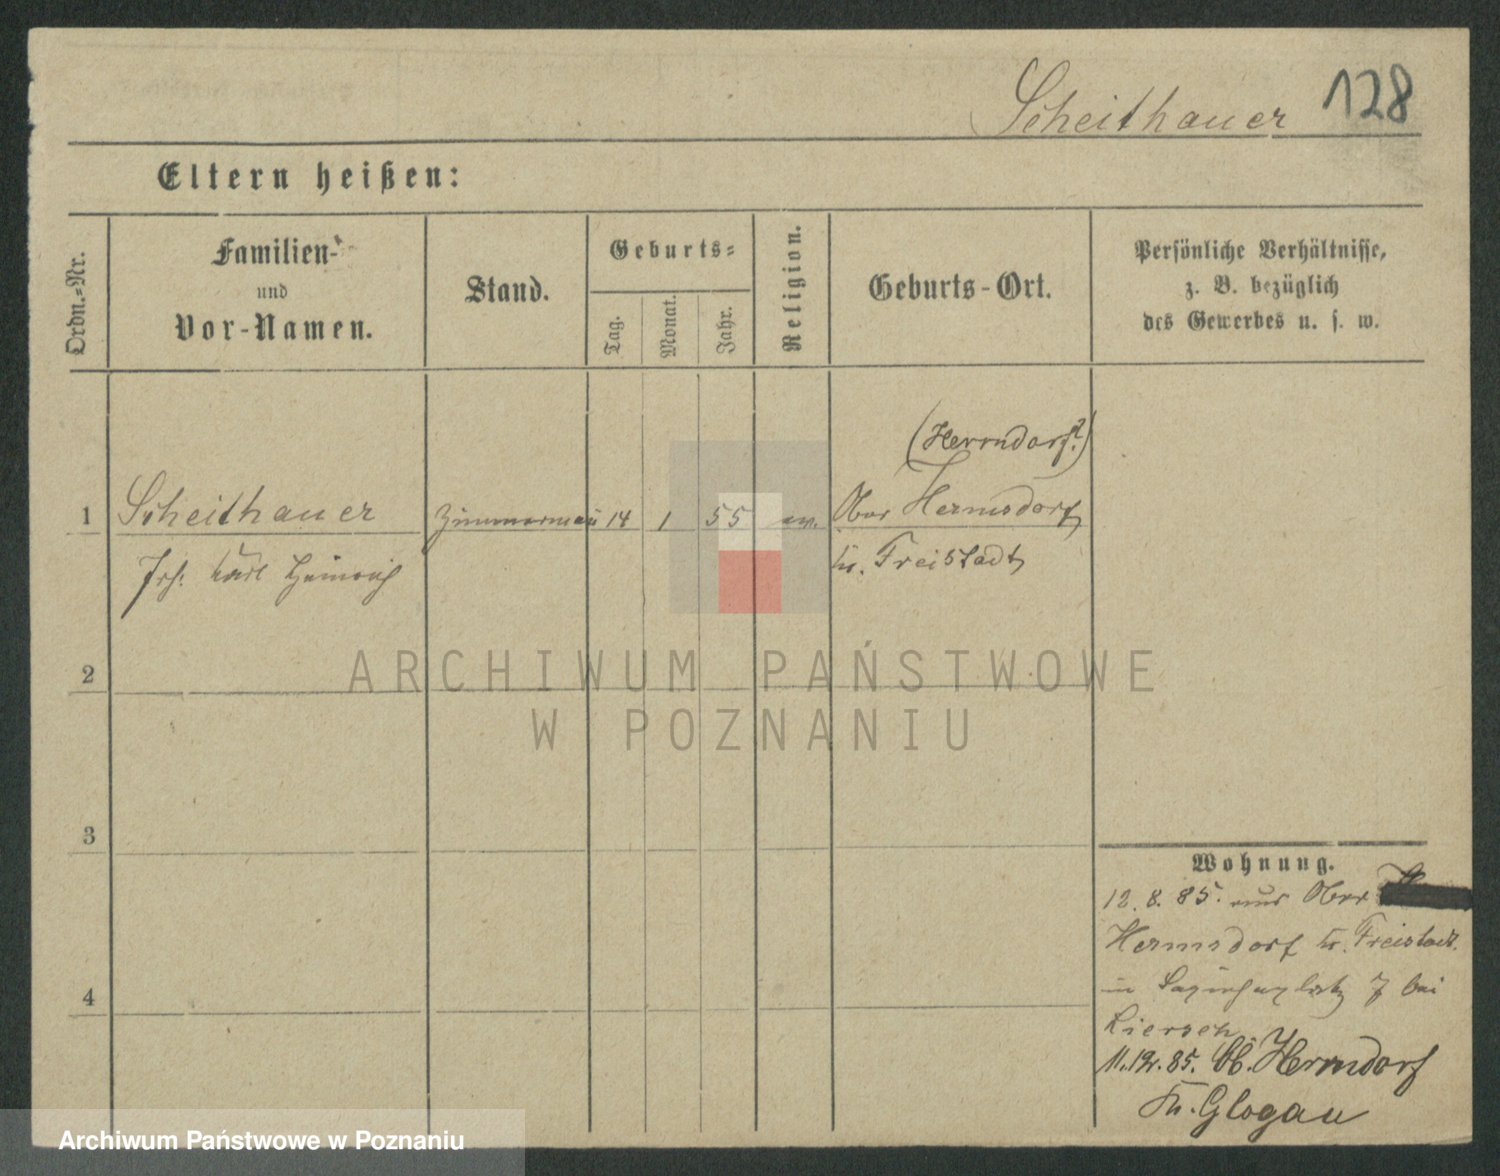 Scheithauer 128
Eltern heißen:
Ordn.-Nr.
Familien-
und
Vor-Namen.
Stand.
Geburts-
Tag.
Monat.
Jahr.
Religion.
Geburts-Ort.
Persönliche Verhältnisse,
z. B. bezüglich
des Gewerbes u. s. w.
(Herrndorf?)
1 Scheithauer Zimmerman 14 1 55 ev. Ober Hermsdorf
Joh. Karl Heinrich Kr. Freistadt
2
3
4
Wohnung.
12. 8. 85. aus Ober
Hermsdorf Kr. Freistadt.
in Sapiehaplatz 7 bei
Liersch.
11.12.85. Ob. Herrndorf
Kr. Glogau
ARCHIWUM PAŃSTWOWE
W POZNANIU
Archiwum Państwowe w Poznaniu